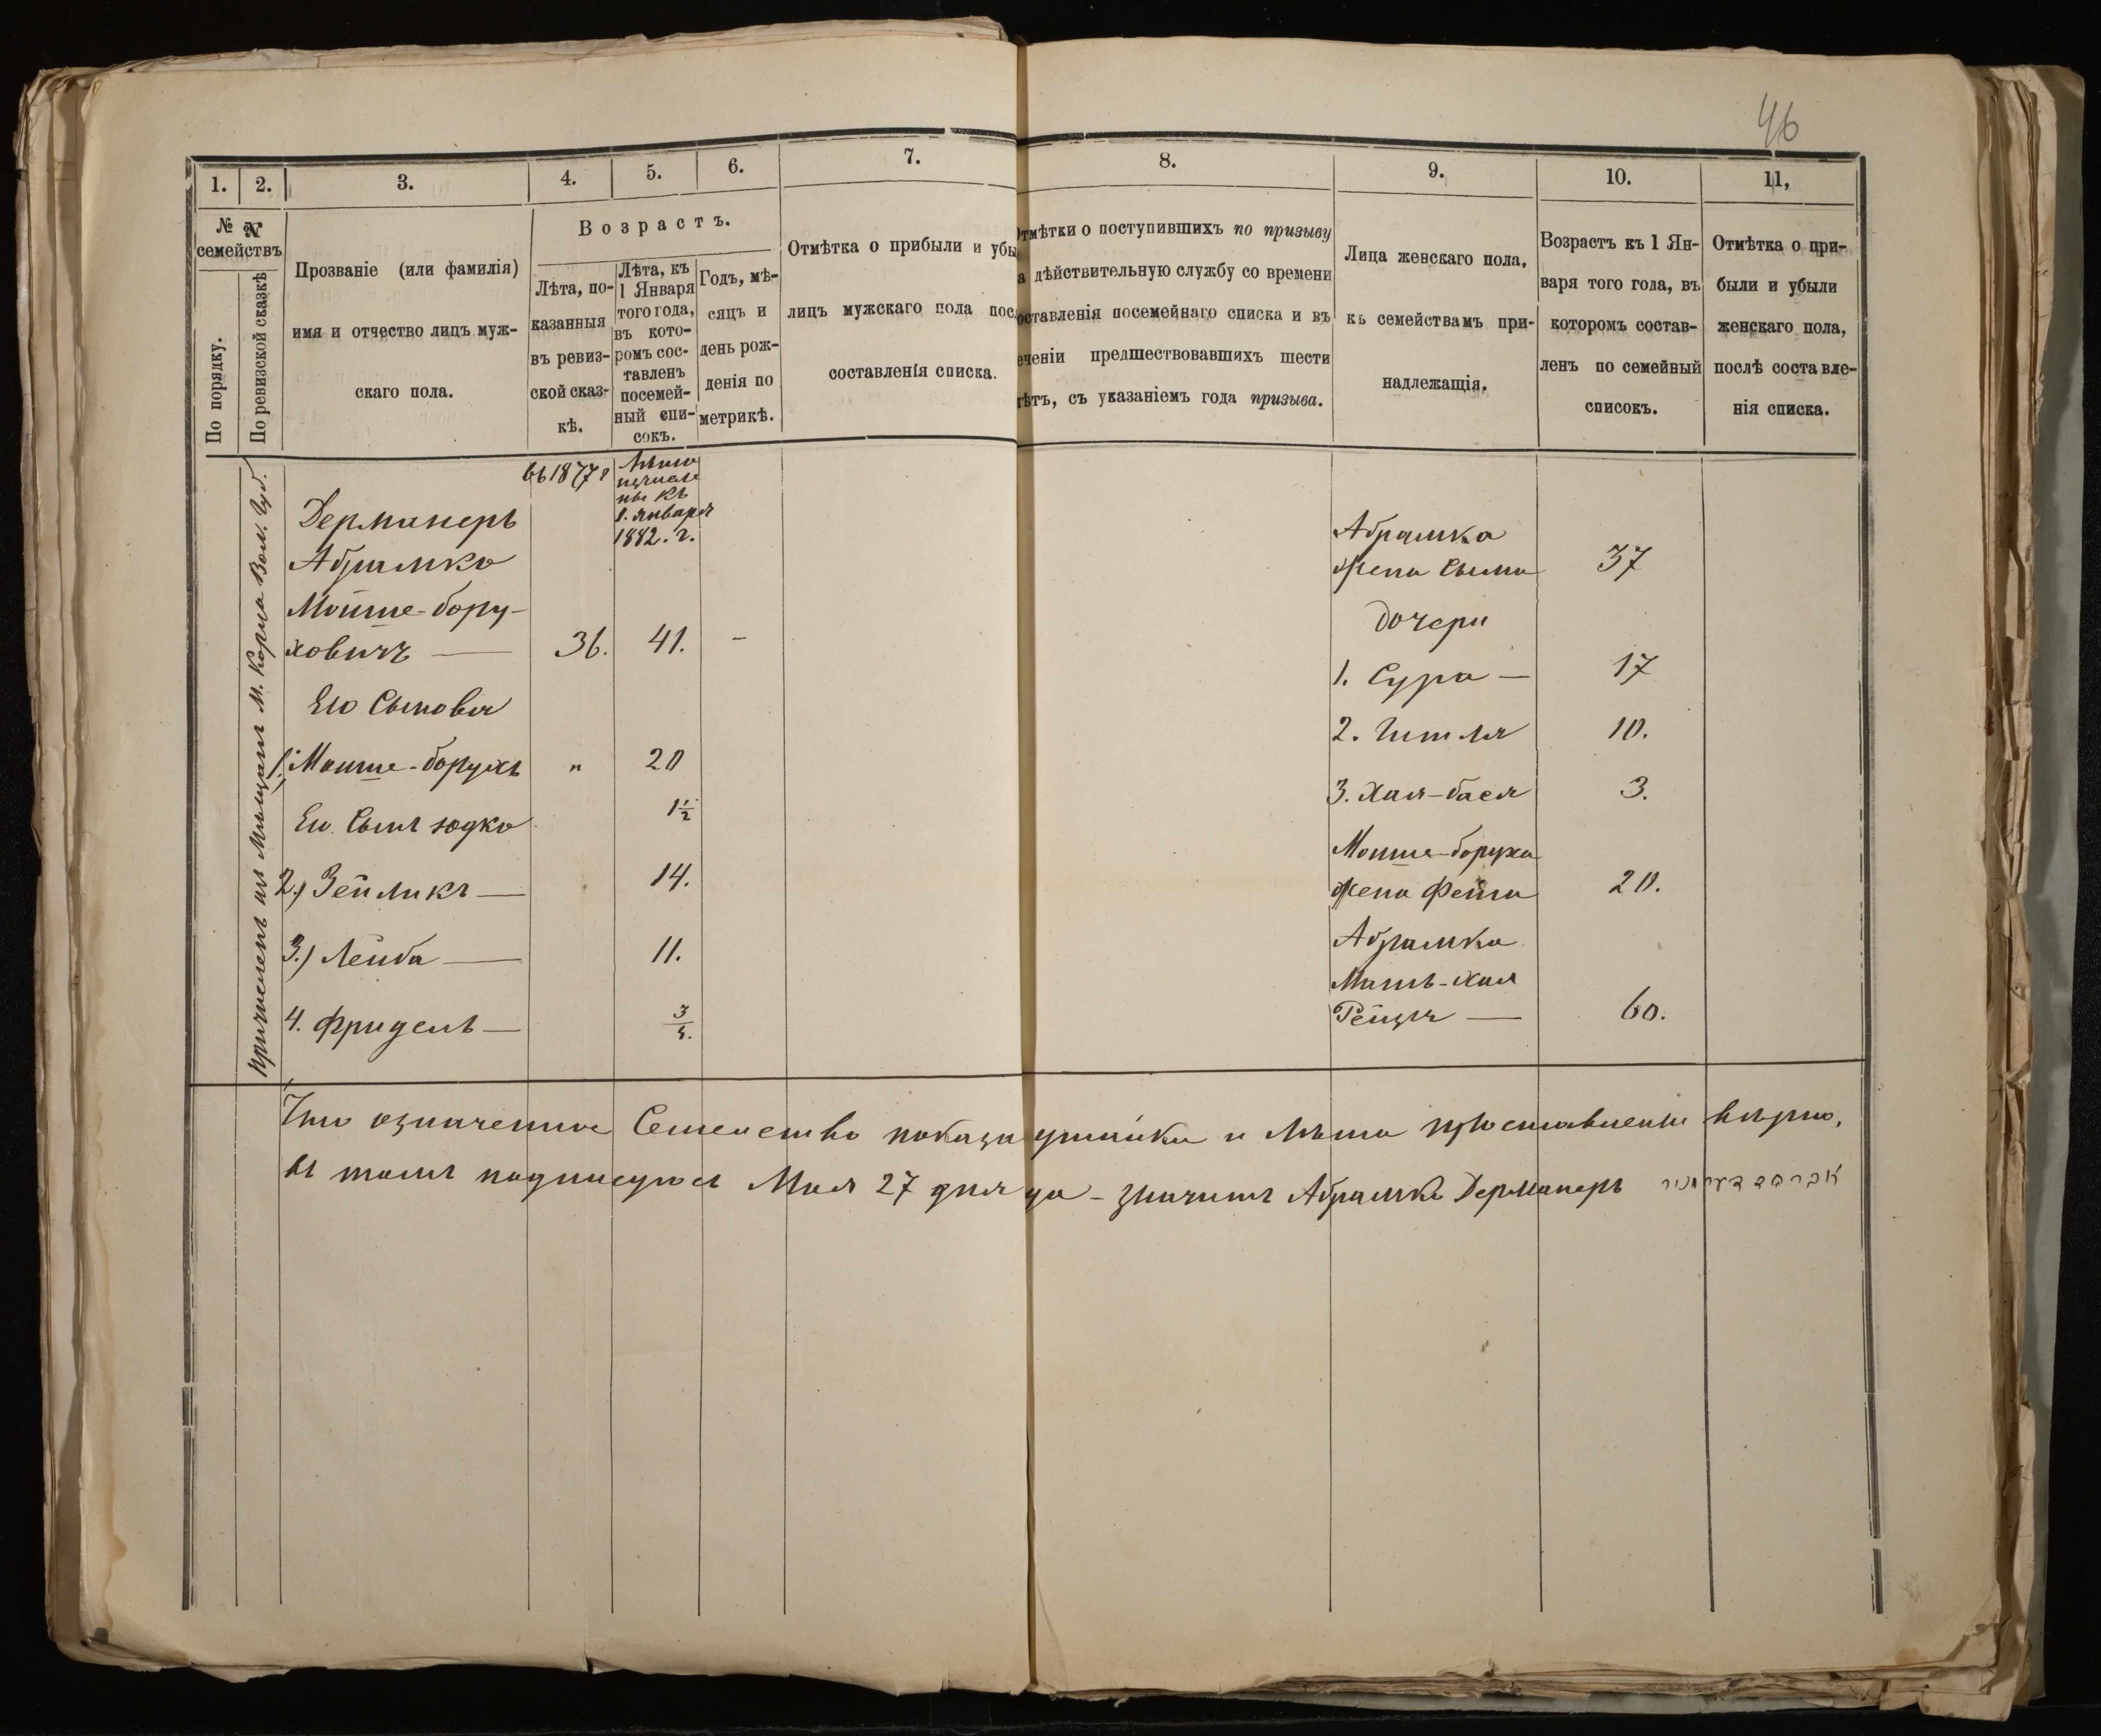 46
1. 2. 3. 4. 5. 6. 7. 8. 9. 10. 11,
№ №
семействъ
По порядку.
По ревизской сказкѣ
Прозваніе (или фамилія)
имя и отчество лицъ муж-
скаго пола.
Возрастъ.
Лѣта, по-
казанныя
въ ревиз-
ской сказ-
кѣ.
Лѣта, къ
1 Января
того года,
въ кото-
ромъ сос-
тавленъ
посемей-
ный спи-
сокъ.
Годъ, мѣ-
сяцъ и
день рож-
денія по
метрикѣ.
Отмѣтка о прибыли и убы
лицъ мужскаго пола пос
составленія списка.
Отмѣтки о поступившихъ по призыву
а дѣйствительную службу со времени
оставленія посемейнаго списка и въ
еченіи предшествовавшихъ шести
лѣтъ, съ указаніемъ года призыва.
Лица женскаго пола,
къ семействамъ при-
надлежащія.
Возрастъ къ 1 Ян-
варя того года, въ
которомъ состав-
ленъ по семейный
списокъ.
Отмѣтка о при-
были и убыли
женскаго пола,
послѣ составле-
нія списка.
Причисленъ къ Мѣщанамъ М. Корца Вол. Губ.
въ 1877 г
Лѣта
ны къ
1. января
1882. г.
Дерманеръ
Абрамко
Мойше-бору-
ховичъ — 36. 41. -
Его Сыновья
1. Мойше-борухъ " 20
Его Сынъ Юдко 1½
2.) Зейликъ — 14.
3.) Лейба — 11.
4. Фридель — 3/4.
Абрамка
Жена Сыма 37
дочери
1. Сура — 17
2. Гитля 10.
3. Хая-бася 3.
Мойше-боруха
жена Фейга 20.
Абрамка
Мать-Хая
Рейзля — 60.
Что означенное Семейство и Лѣта проставлены вѣрно,
въ томъ подписуюсь Мая 27 дня значитъ Абрамко Дерманеръ